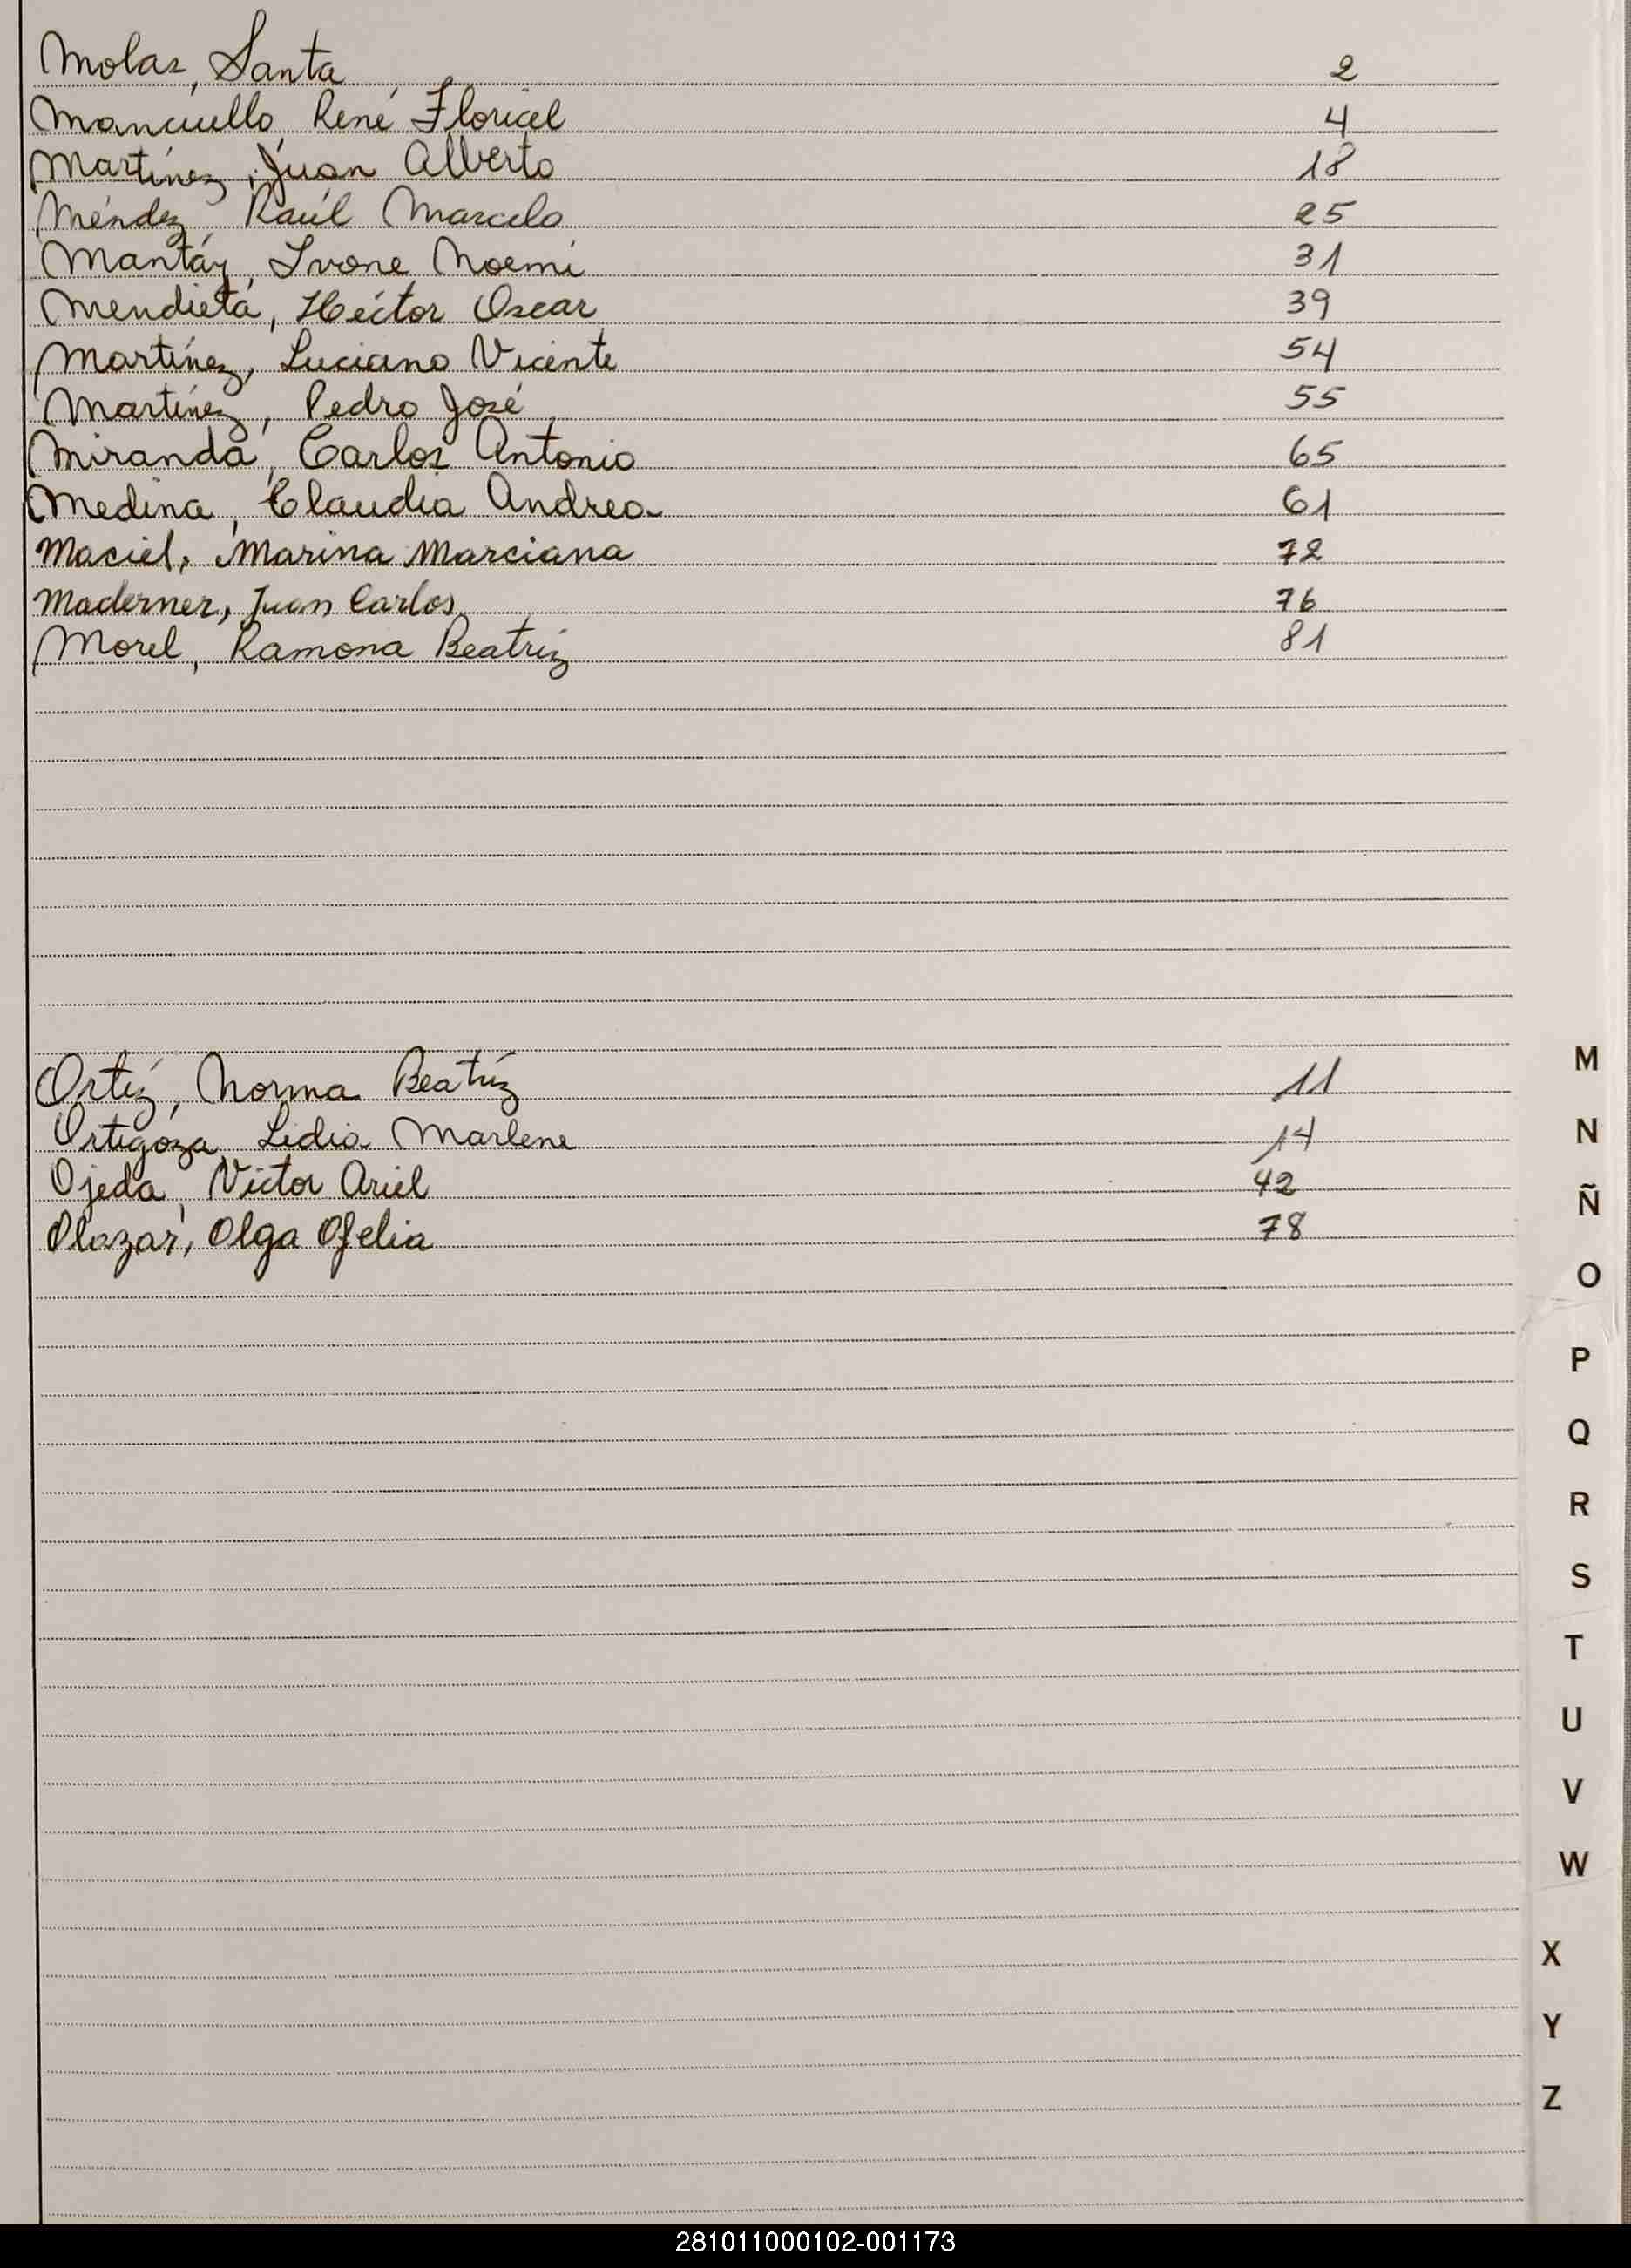 Molas, Santa 2
Mancuello, René Floricel 4
Martínez, Juan Alberto 18
Méndez, Raúl Marcelo 25
Mantáy, Ivone Noemi 31
Mendieta, Héctor Oscar 39
Martínez, Luciano Vicente 54
Martínez, Pedro José 55
Miranda, Carlos Antonio 65
Medina, Claudia Andrea 61
Maciel, Marina Marciana 72
Maderner, Juan Carlos 76
Morel, Ramona Beatríz 81
Ortíz, Norma Beatríz 11
Ortigoza, Lidia Marlene 14
Ojeda, Victor Ariel 42
Olazar, Olga Ofelia 78
M
N
Ñ
O
P
Q
R
S
T
U
V
W
X
Y
Z
281011000102-001173